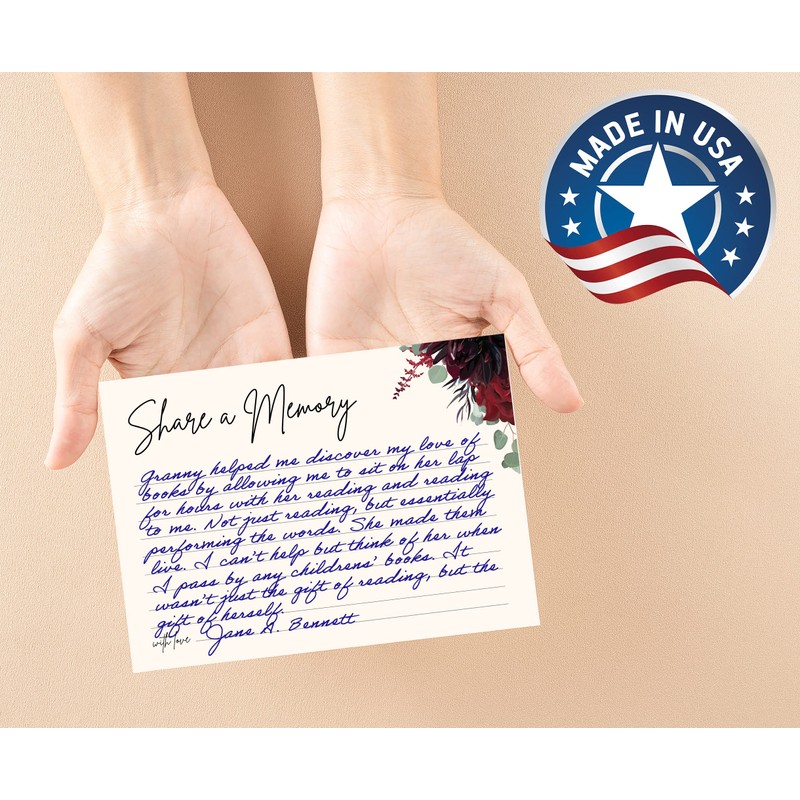 MADE IN USA
Share a Memory
Granny helped me discover my love of
books by allowing me to sit on her lap
for hours with her reading and reading
to me. Not just reading, but essentially
performing the words. She made them
live. I can't help but think of her when
I pass by any childrens' books. It
wasn't just the gift of reading, but the
gift of herself.
with love Jane A. Bennett